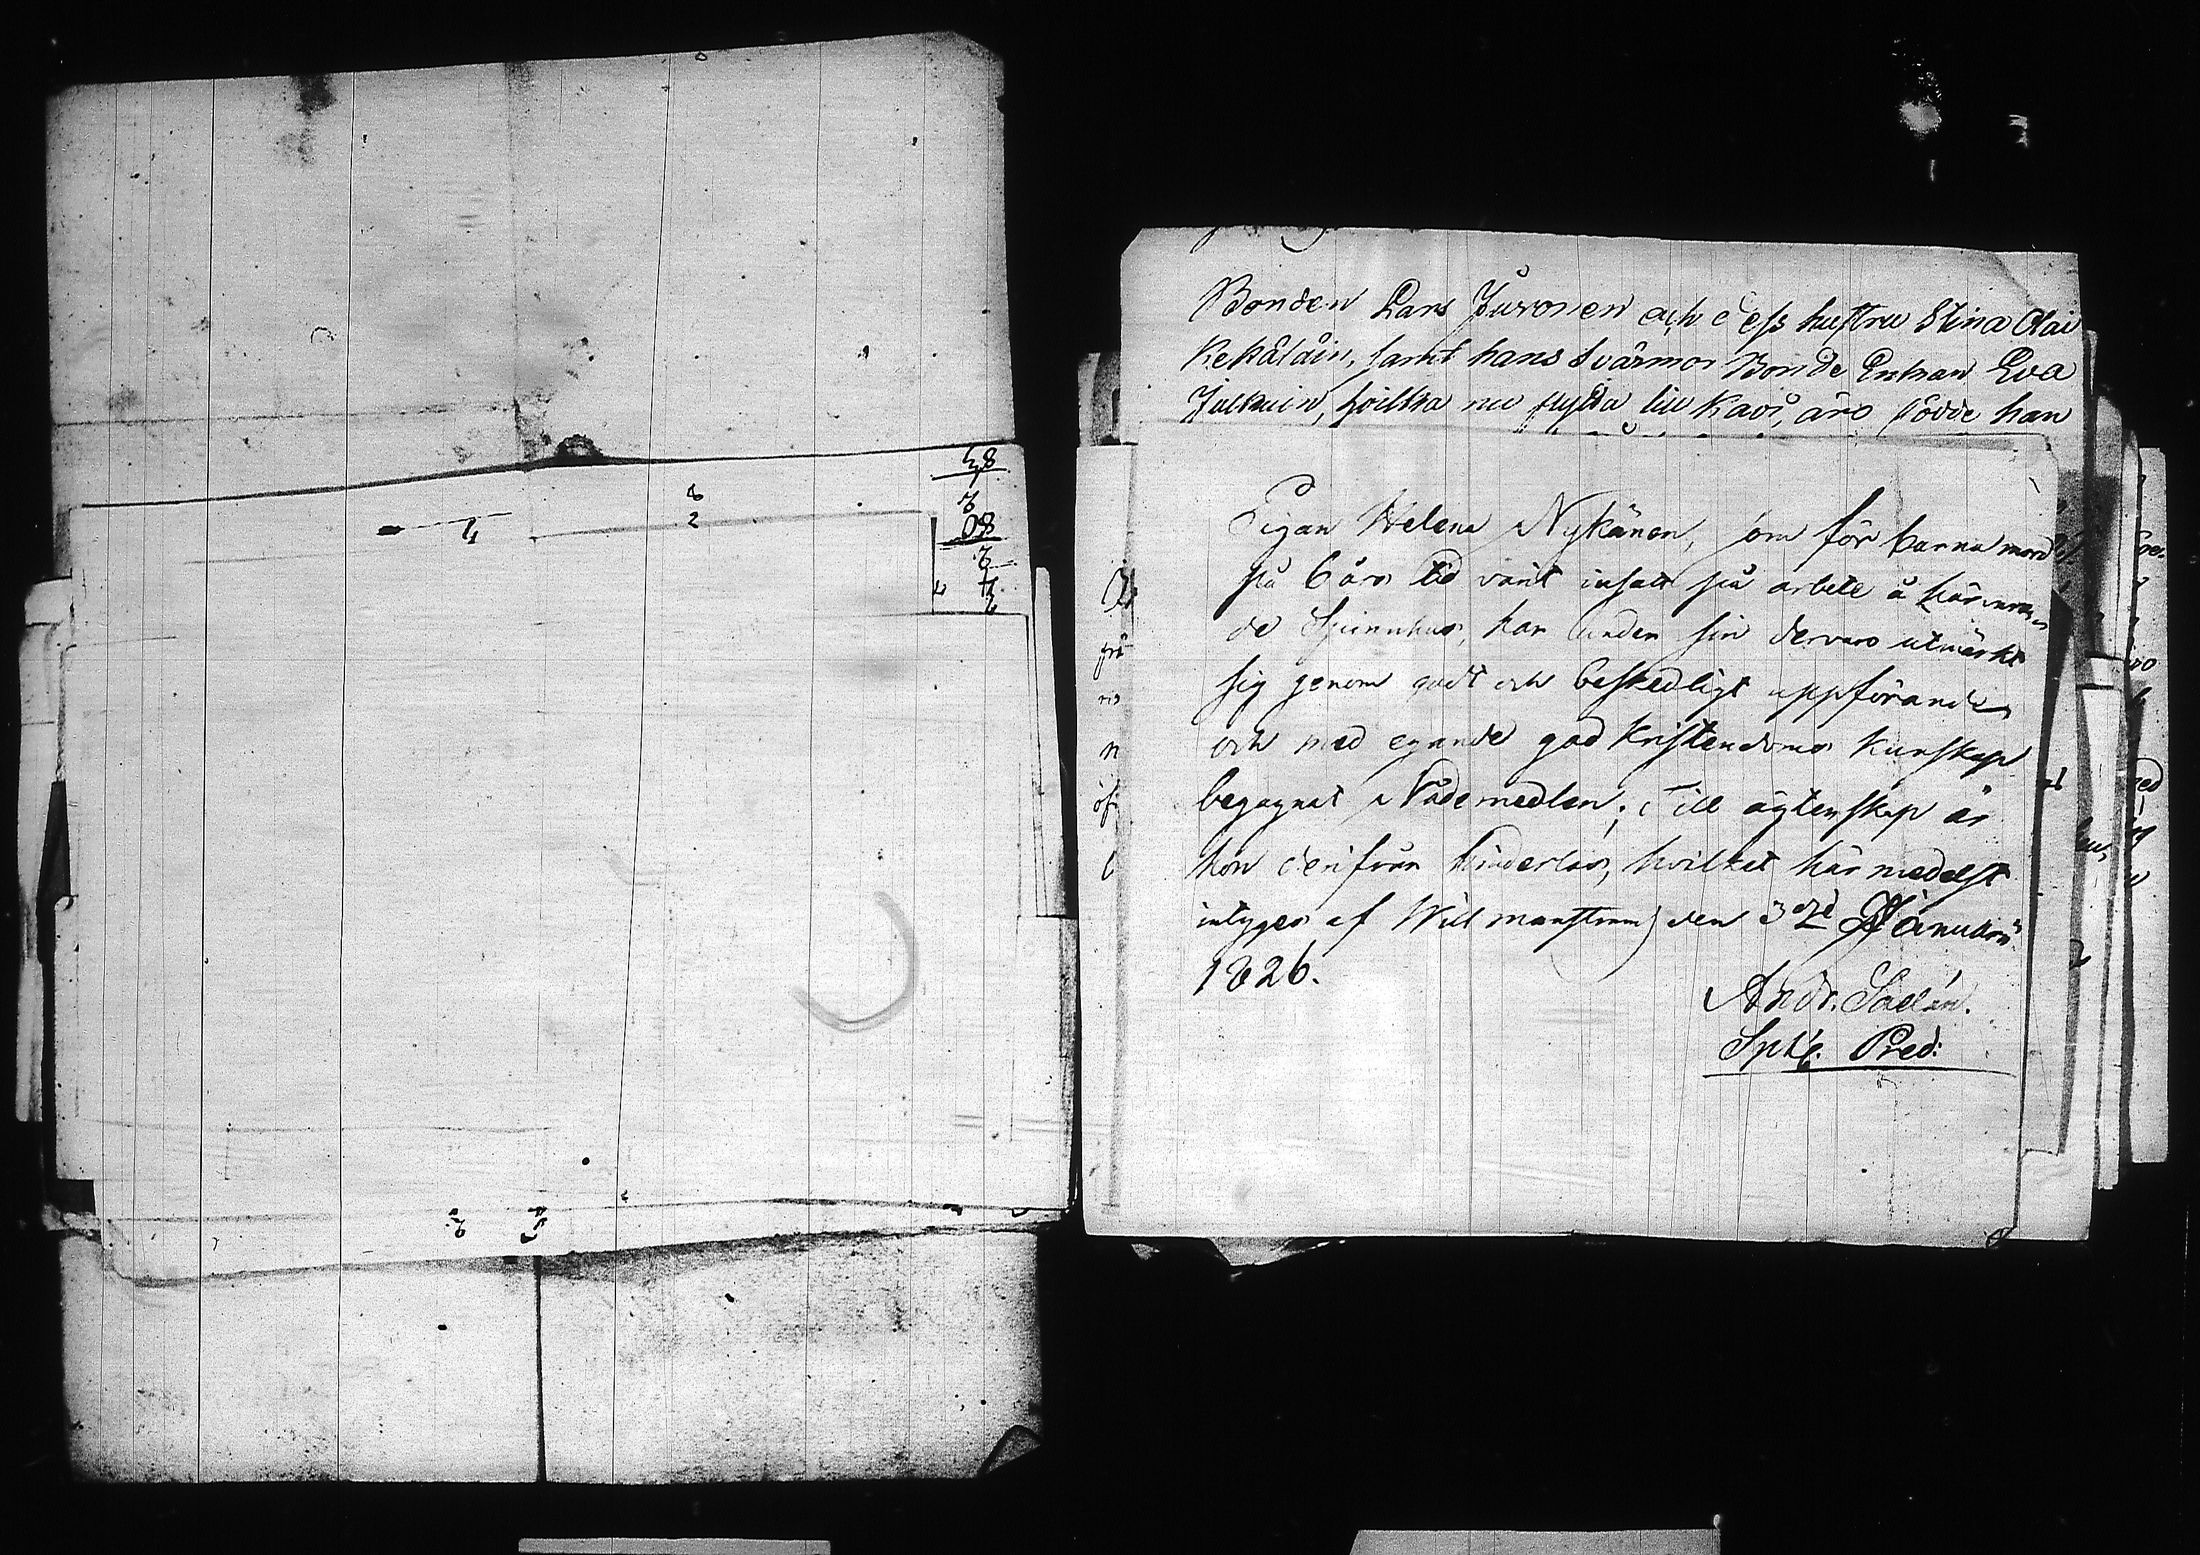 Bonden Lars Juvonen och dess hustru Stina Olai
Kekäläin, samt hans Svärmor Bonde Enkan Eva
Julkuin, hvilka nu flytta till Kavi, äro födde han
Pigan Helena Nykänen, som för barnamord
på 6 års tid varit insatt på arbete å härvaran-
de Spinnhus, har under sin dervaro utmärkt
sig genom godt och beskedligt uppförande
och med egande god Kristendoms kunskap
begagnat Nådemedlen; Till ägtenskap är
hon derifrån hinderlös, hvilket härmedelst
intygas af Willmanstrand den 3dje Januarii
1826.
Andr. Sallén.
Pred: